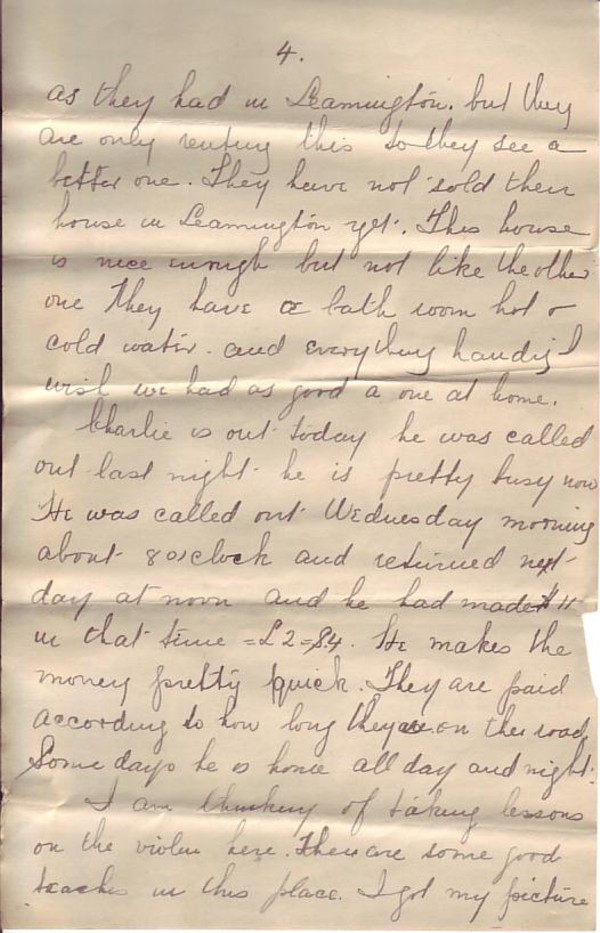 4.
as they had in Leamington. but they
are only renting this to they see a
better one. They have not sold their
house in Leamington yet. This house
is nice enough but not like the other
one They have a bath room hot &
cold water. and everything handy I
wish we had as good a one at home.
Charlie is out today he was called
out last night he is pretty busy now
He was called out Wednesday morning
about 8 o'clock and returned next
day at noon and he had made $11
in that time = £2=5.4. He makes the
money pretty quick. They are paid
according to how long they are on the road
Some days he is home all day and night.
I am thinking of taking lessons
on the violin here. There are some good
teaches in this place. I got my picture